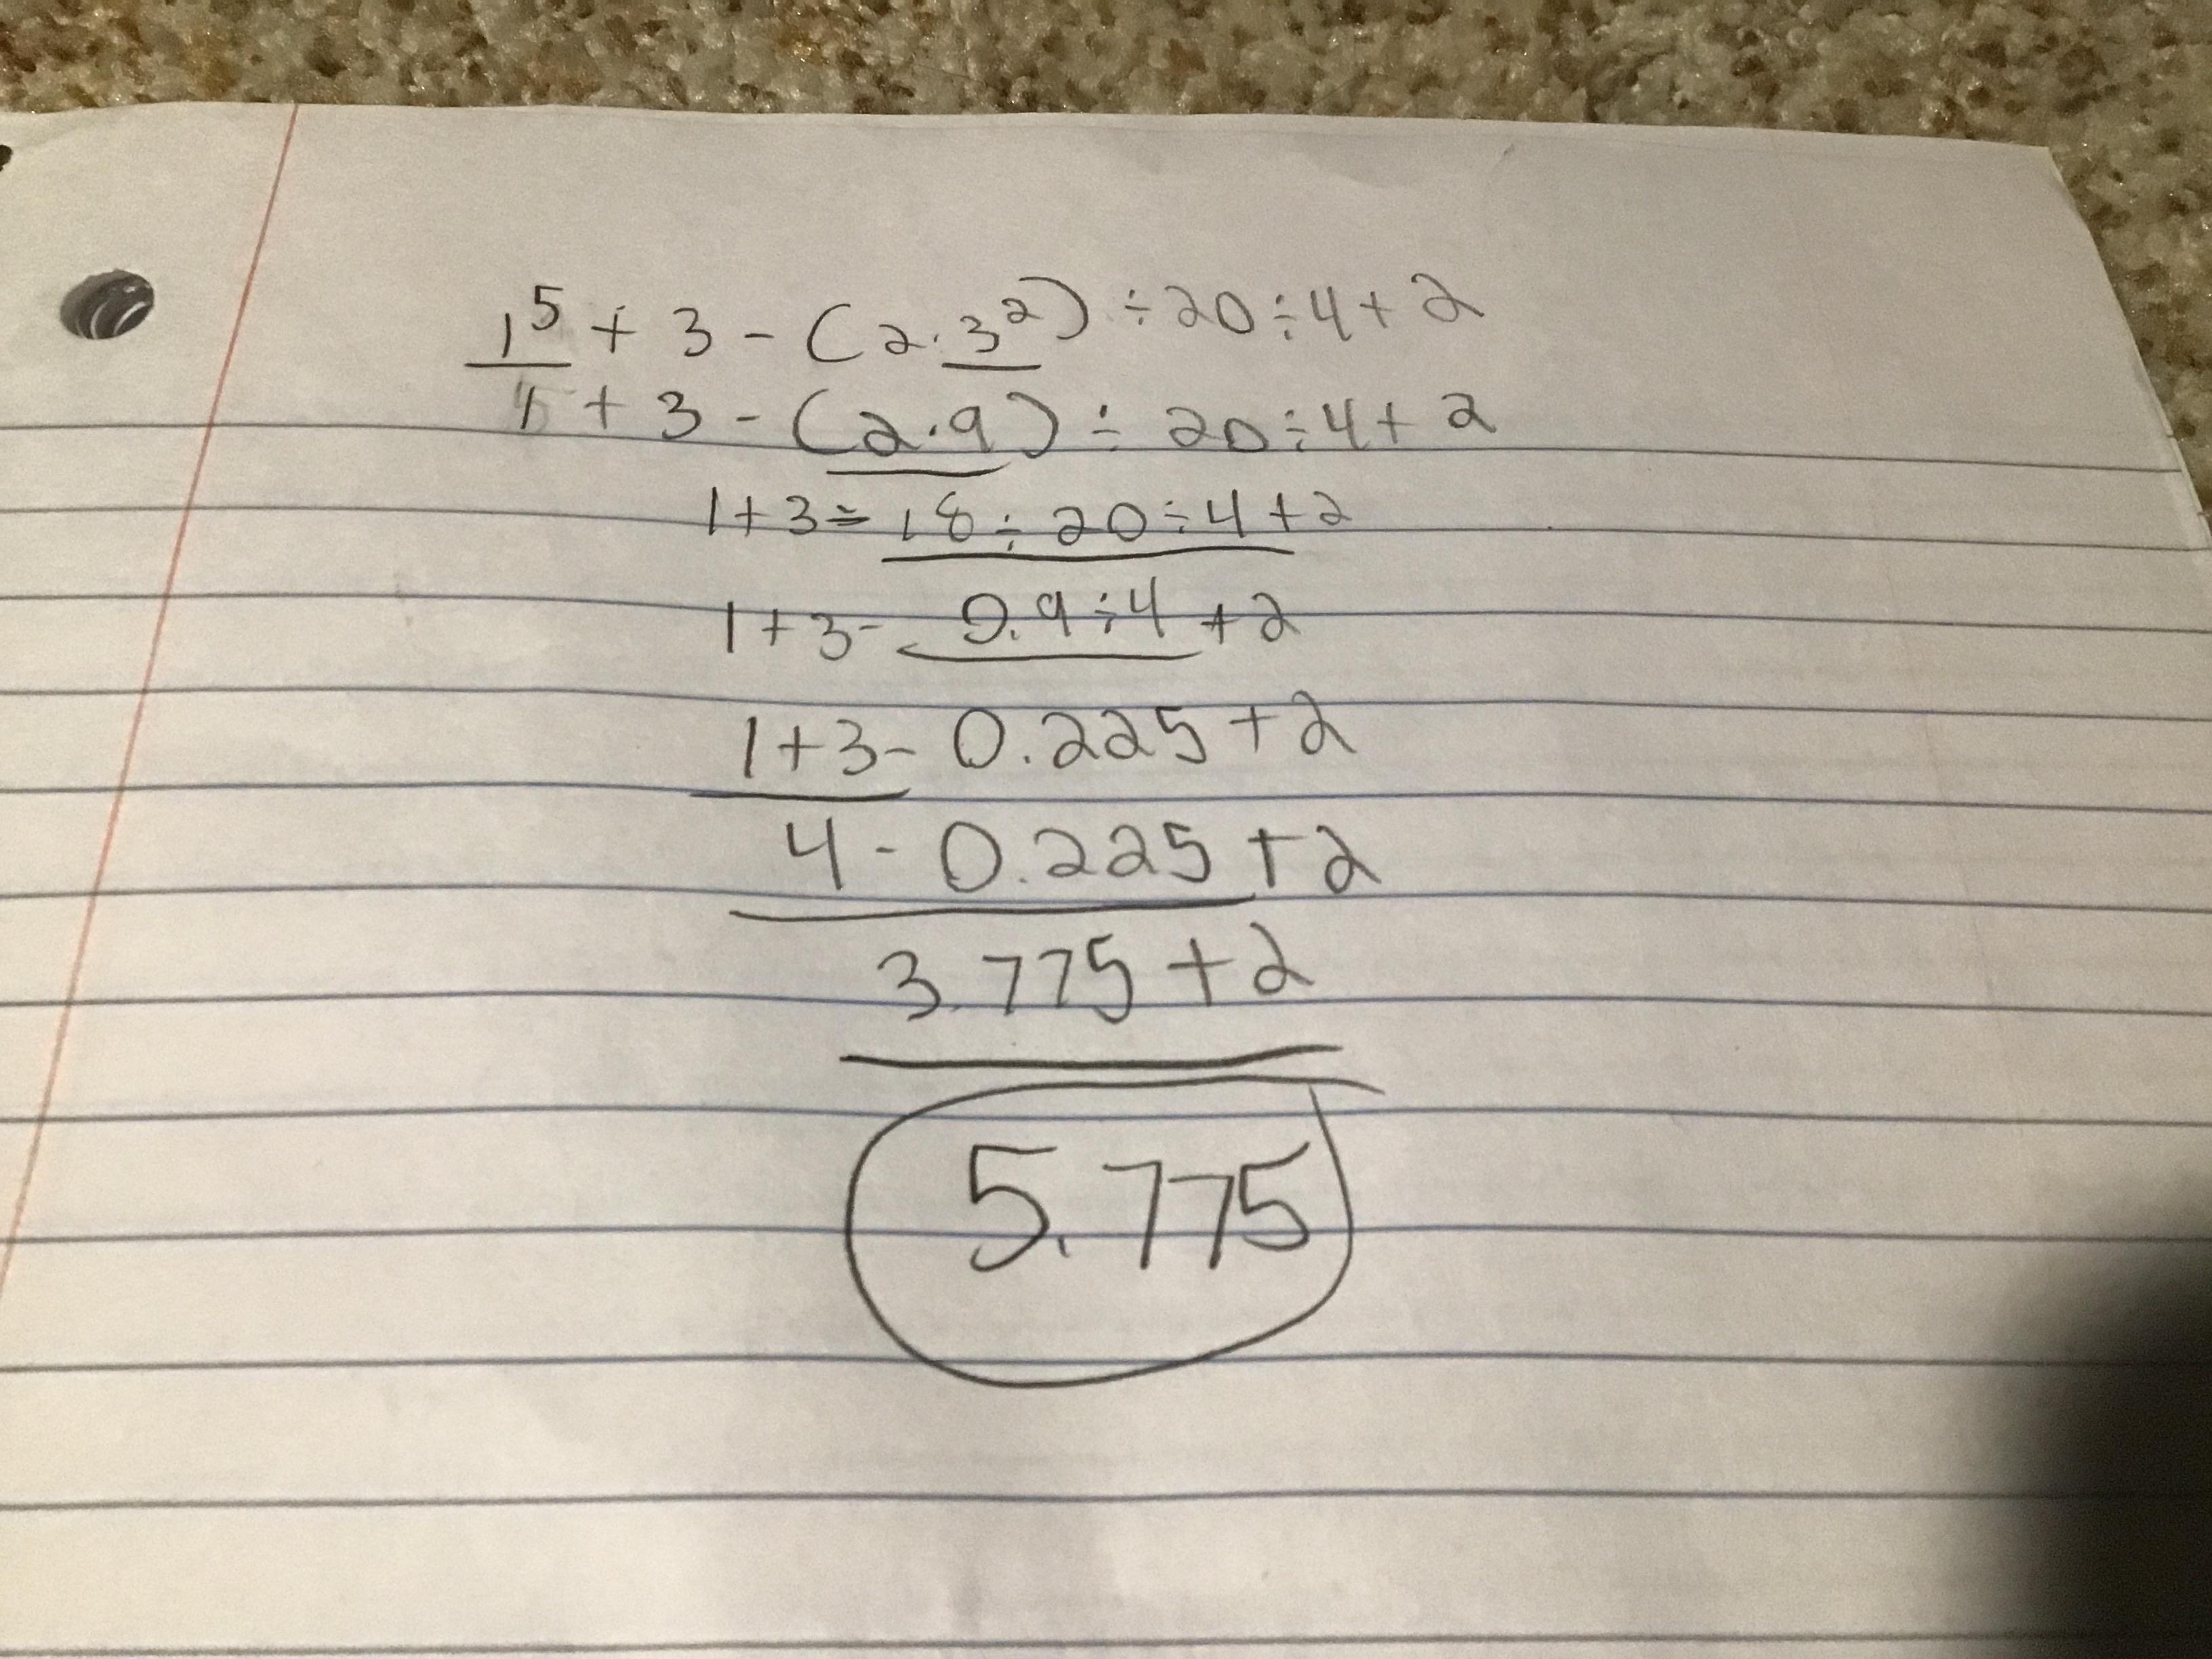 1⁵ + 3 - (2·3²) ÷ 20 ÷ 4 + 2
1 + 3 - (2·9) ÷ 20 ÷ 4 + 2
1 + 3 - 18 ÷ 20 ÷ 4 + 2
1 + 3 - 0.9 ÷ 4 + 2
1 + 3 - 0.225 + 2
4 - 0.225 + 2
3.775 + 2
5.775